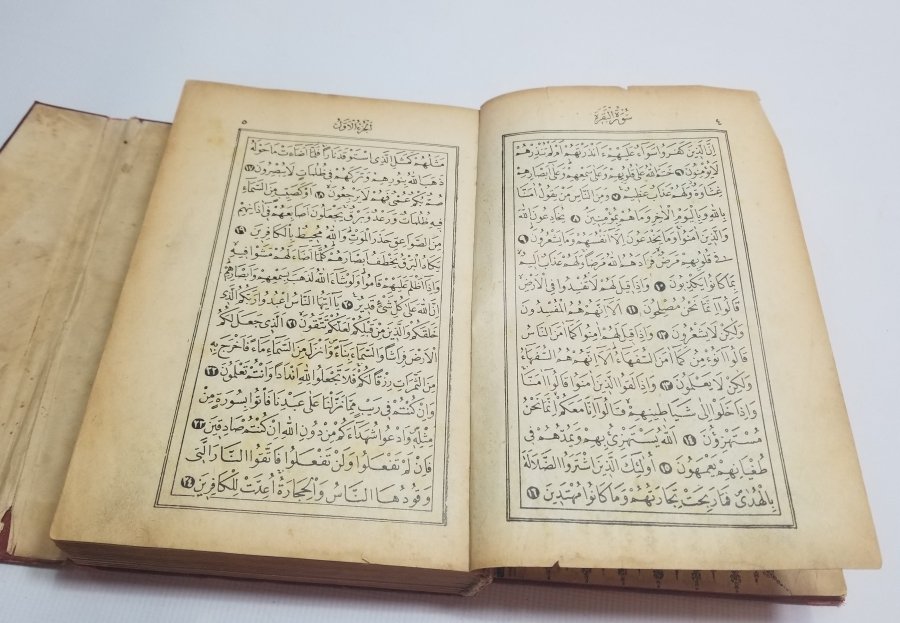 ٤
سورة البقرة
اِنَّ الَّذِينَ كَفَرُوا سَوَاءٌ عَلَيْهِمْ ءَاَنْذَرْتَهُمْ اَمْ لَمْ تُنْذِرْهُمْ
لَا يُؤْمِنُونَ ٦ خَتَمَ اللهُ عَلَى قُلُوبِهِمْ وَعَلَى سَمْعِهِمْ وَعَلَى اَبْصَارِهِمْ
غِشَاوَةٌ وَلَهُمْ عَذَابٌ عَظِيمٌ ٧ وَمِنَ النَّاسِ مَنْ يَقُولُ اٰمَنَّا
بِاللهِ وَبِالْيَوْمِ الْاٰخِرِ وَمَا هُمْ بِمُؤْمِنِينَ ٨ يُخَادِعُونَ اللهَ
وَالَّذِينَ اٰمَنُوا وَمَا يَخْدَعُونَ اِلَّا اَنْفُسَهُمْ وَمَا يَشْعُرُونَ ٩
فِى قُلُوبِهِمْ مَرَضٌ فَزَادَهُمُ اللهُ مَرَضًا وَلَهُمْ عَذَابٌ اَلِيمٌ
بِمَا كَانُوا يَكْذِبُونَ ١٠ وَاِذَا قِيلَ لَهُمْ لَا تُفْسِدُوا فِى الْاَرْضِ
قَالُوا اِنَّمَا نَحْنُ مُصْلِحُونَ ١١ اَلَا اِنَّهُمْ هُمُ الْمُفْسِدُونَ
وَلٰكِنْ لَا يَشْعُرُونَ ١٢ وَاِذَا قِيلَ لَهُمْ اٰمِنُوا كَمَا اٰمَنَ النَّاسُ
قَالُوا اَنُؤْمِنُ كَمَا اٰمَنَ السُّفَهَاءُ اَلَا اِنَّهُمْ هُمُ السُّفَهَاءُ
وَلٰكِنْ لَا يَعْلَمُونَ ١٣ وَاِذَا لَقُوا الَّذِينَ اٰمَنُوا قَالُوا اٰمَنَّا
وَاِذَا خَلَوْا اِلَى شَيَاطِينِهِمْ قَالُوا اِنَّا مَعَكُمْ اِنَّمَا نَحْنُ
مُسْتَهْزِؤُنَ ١٤ اَللهُ يَسْتَهْزِئُ بِهِمْ وَيَمُدُّهُمْ فِى
طُغْيَانِهِمْ يَعْمَهُونَ ١٥ اُولٰئِكَ الَّذِينَ اشْتَرَوُا الضَّلَالَةَ
بِالْهُدٰى فَمَا رَبِحَتْ تِجَارَتُهُمْ وَمَا كَانُوا مُهْتَدِينَ ١٦
الجزء الاول
٥
مَثَلُهُمْ كَمَثَلِ الَّذِى اسْتَوْقَدَ نَارًا فَلَمَّا اَضَاءَتْ مَا حَوْلَهُ
ذَهَبَ اللهُ بِنُورِهِمْ وَتَرَكَهُمْ فِى ظُلُمَاتٍ لَا يُبْصِرُونَ ١٧
صُمٌّ بُكْمٌ عُمْىٌ فَهُمْ لَا يَرْجِعُونَ ١٨ اَوْ كَصَيِّبٍ مِنَ السَّمَاءِ
فِيهِ ظُلُمَاتٌ وَرَعْدٌ وَبَرْقٌ يَجْعَلُونَ اَصَابِعَهُمْ فِى اٰذَانِهِمْ
مِنَ الصَّوَاعِقِ حَذَرَ الْمَوْتِ وَاللهُ مُحِيطٌ بِالْكَافِرِينَ ١٩
يَكَادُ الْبَرْقُ يَخْطَفُ اَبْصَارَهُمْ كُلَّمَا اَضَاءَ لَهُمْ مَشَوْا فِيهِ
وَاِذَا اَظْلَمَ عَلَيْهِمْ قَامُوا وَلَوْ شَاءَ اللهُ لَذَهَبَ بِسَمْعِهِمْ وَاَبْصَارِهِمْ
اِنَّ اللهَ عَلَى كُلِّ شَىْءٍ قَدِيرٌ ٢٠ يَا اَيُّهَا النَّاسُ اعْبُدُوا رَبَّكُمُ الَّذِى
خَلَقَكُمْ وَالَّذِينَ مِنْ قَبْلِكُمْ لَعَلَّكُمْ تَتَّقُونَ ٢١ اَلَّذِى جَعَلَ لَكُمُ
الْاَرْضَ فِرَاشًا وَالسَّمَاءَ بِنَاءً وَاَنْزَلَ مِنَ السَّمَاءِ مَاءً فَاَخْرَجَ بِهِ
مِنَ الثَّمَرَاتِ رِزْقًا لَكُمْ فَلَا تَجْعَلُوا لِلهِ اَنْدَادًا وَاَنْتُمْ تَعْلَمُونَ ٢٢
وَاِنْ كُنْتُمْ فِى رَيْبٍ مِمَّا نَزَّلْنَا عَلَى عَبْدِنَا فَأْتُوا بِسُورَةٍ مِنْ
مِثْلِهِ وَادْعُوا شُهَدَاءَكُمْ مِنْ دُونِ اللهِ اِنْ كُنْتُمْ صَادِقِينَ ٢٣
فَاِنْ لَمْ تَفْعَلُوا وَلَنْ تَفْعَلُوا فَاتَّقُوا النَّارَ الَّتِى
وَقُودُهَا النَّاسُ وَالْحِجَارَةُ اُعِدَّتْ لِلْكَافِرِينَ ٢٤